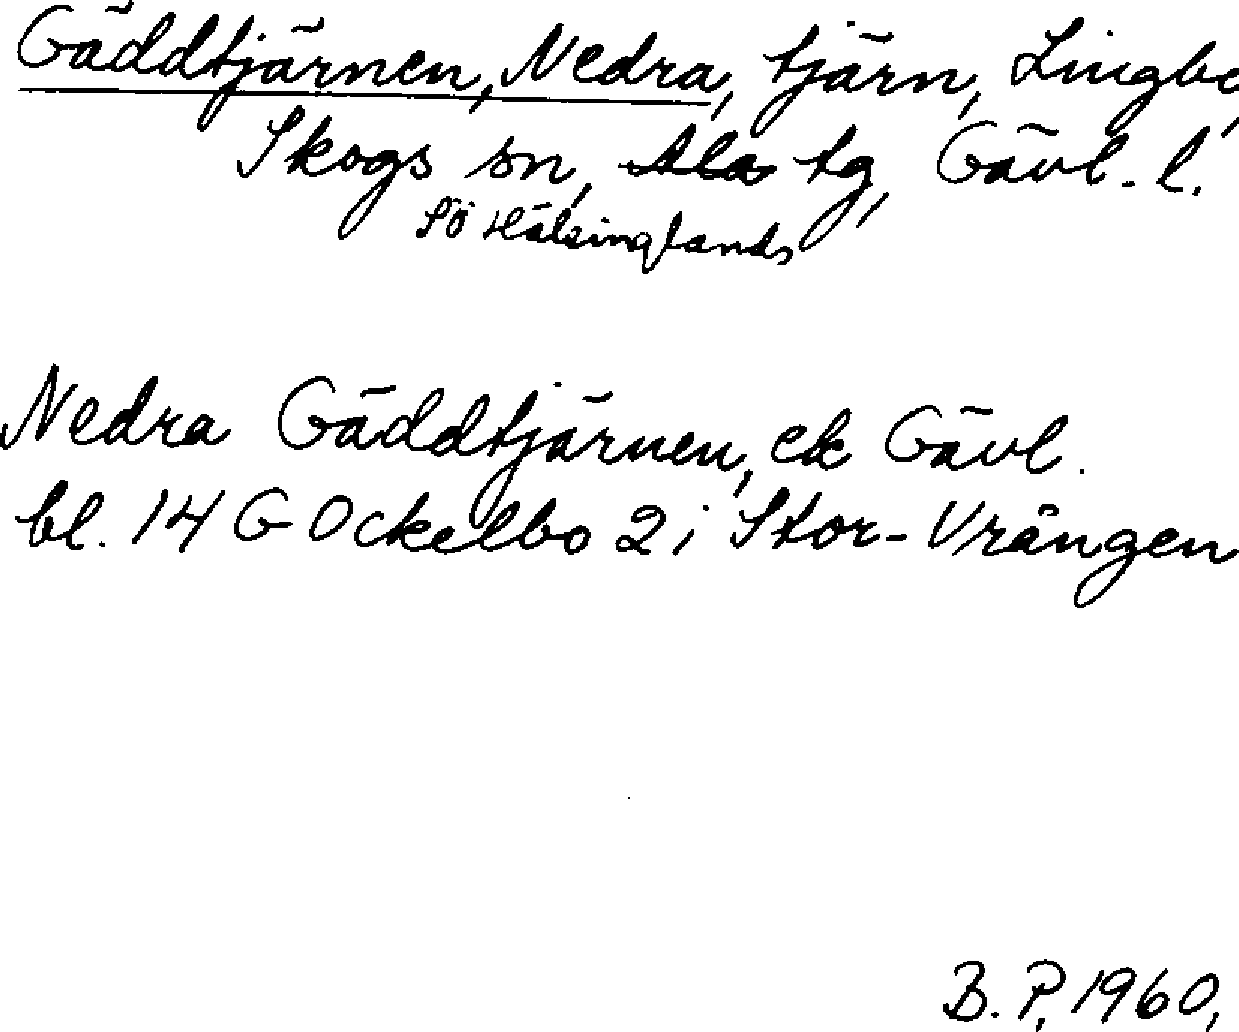 Gäddtjärnen, Nedra, tjärn, Lingbo,
Skogs sn, Ala tg, Gävl. l.
Sö Hälsinglands
Nedra Gäddtjärnen, ek Gävl.
bl. 14 G Ockelbo 2 i Stor-Vrången
B. P. 1960,